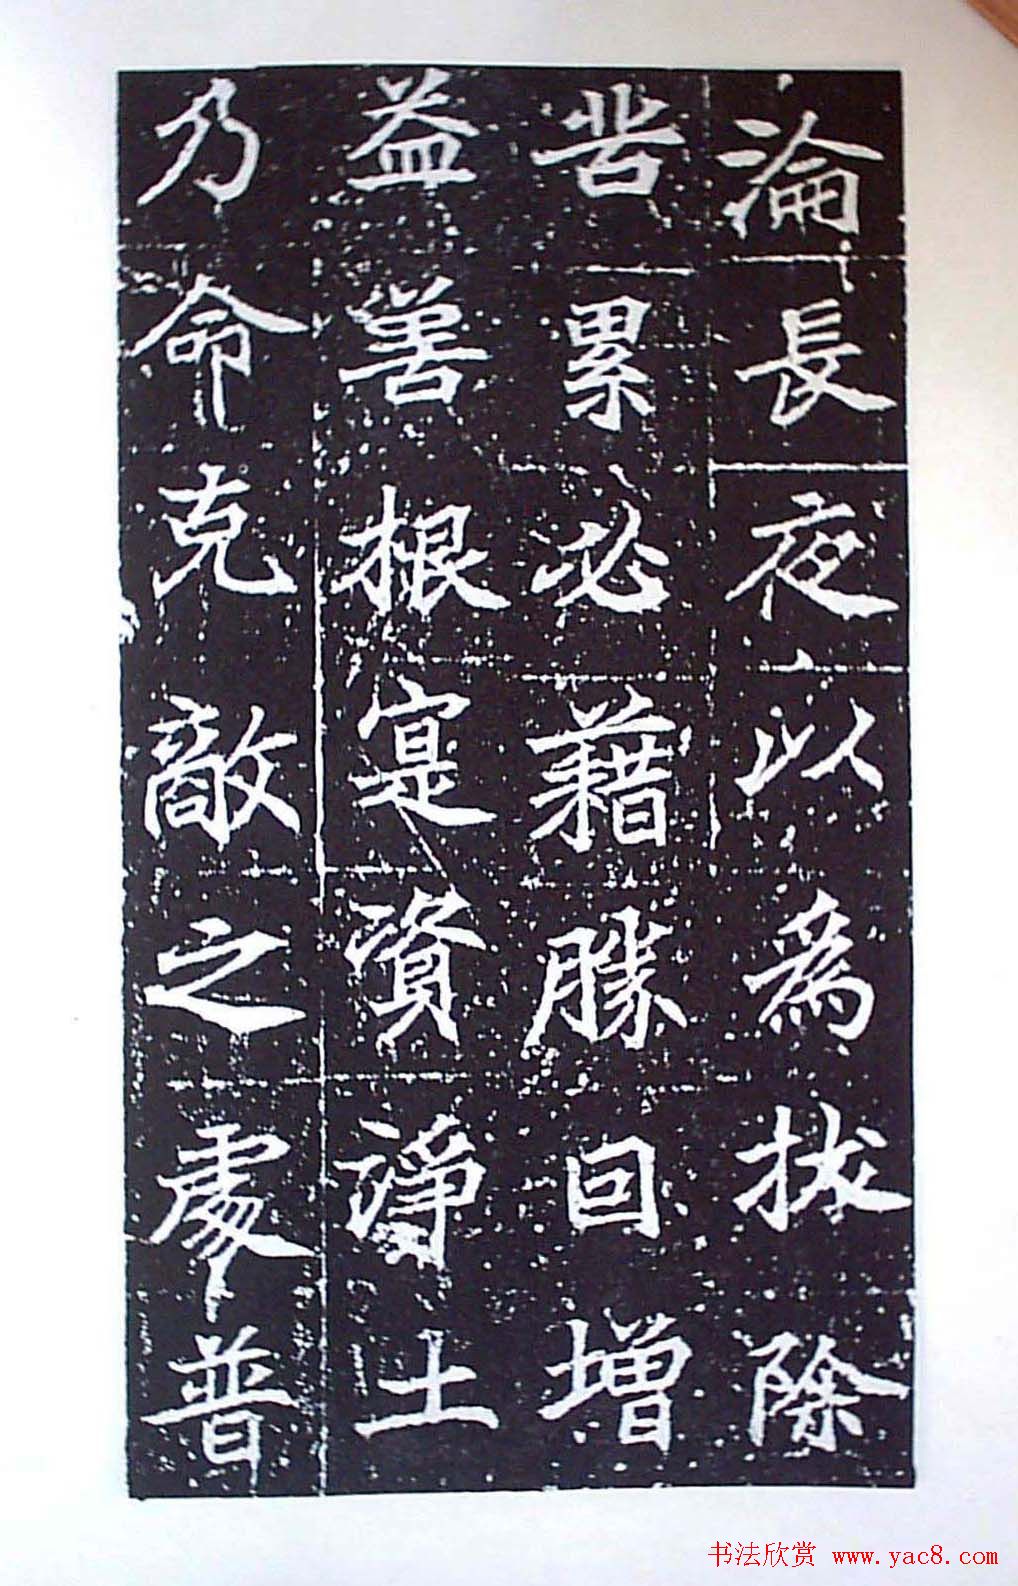 淪長夜以為拔除
苦累必藉勝因增
益善根寔資淨土
乃命克敵之處普
书法欣赏 www.yac8.com